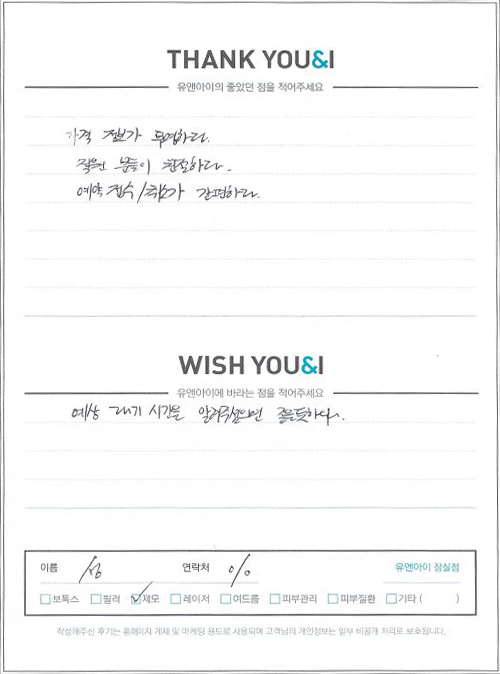 THANK YOU&I
유앤아이의 좋았던 점을 적어주세요
가격 정보가 투명하다.
직원 분들이 친절하다.
예약 접수/취소가 간편하다.
WISH YOU&I
유앤아이에 바라는 점을 적어주세요
예상 대기 시간을 알려주셨으면 좋을듯하다.
이름 연락처 유앤아이 잠실점
보톡스 필러 제모 레이저 여드름 피부관리 피부질환 기타 ( )
작성해주신 후기는 홈페이지 게재 및 마케팅 용도로 사용되며 고객님의 개인정보는 일부 비공개 처리로 보호됩니다.